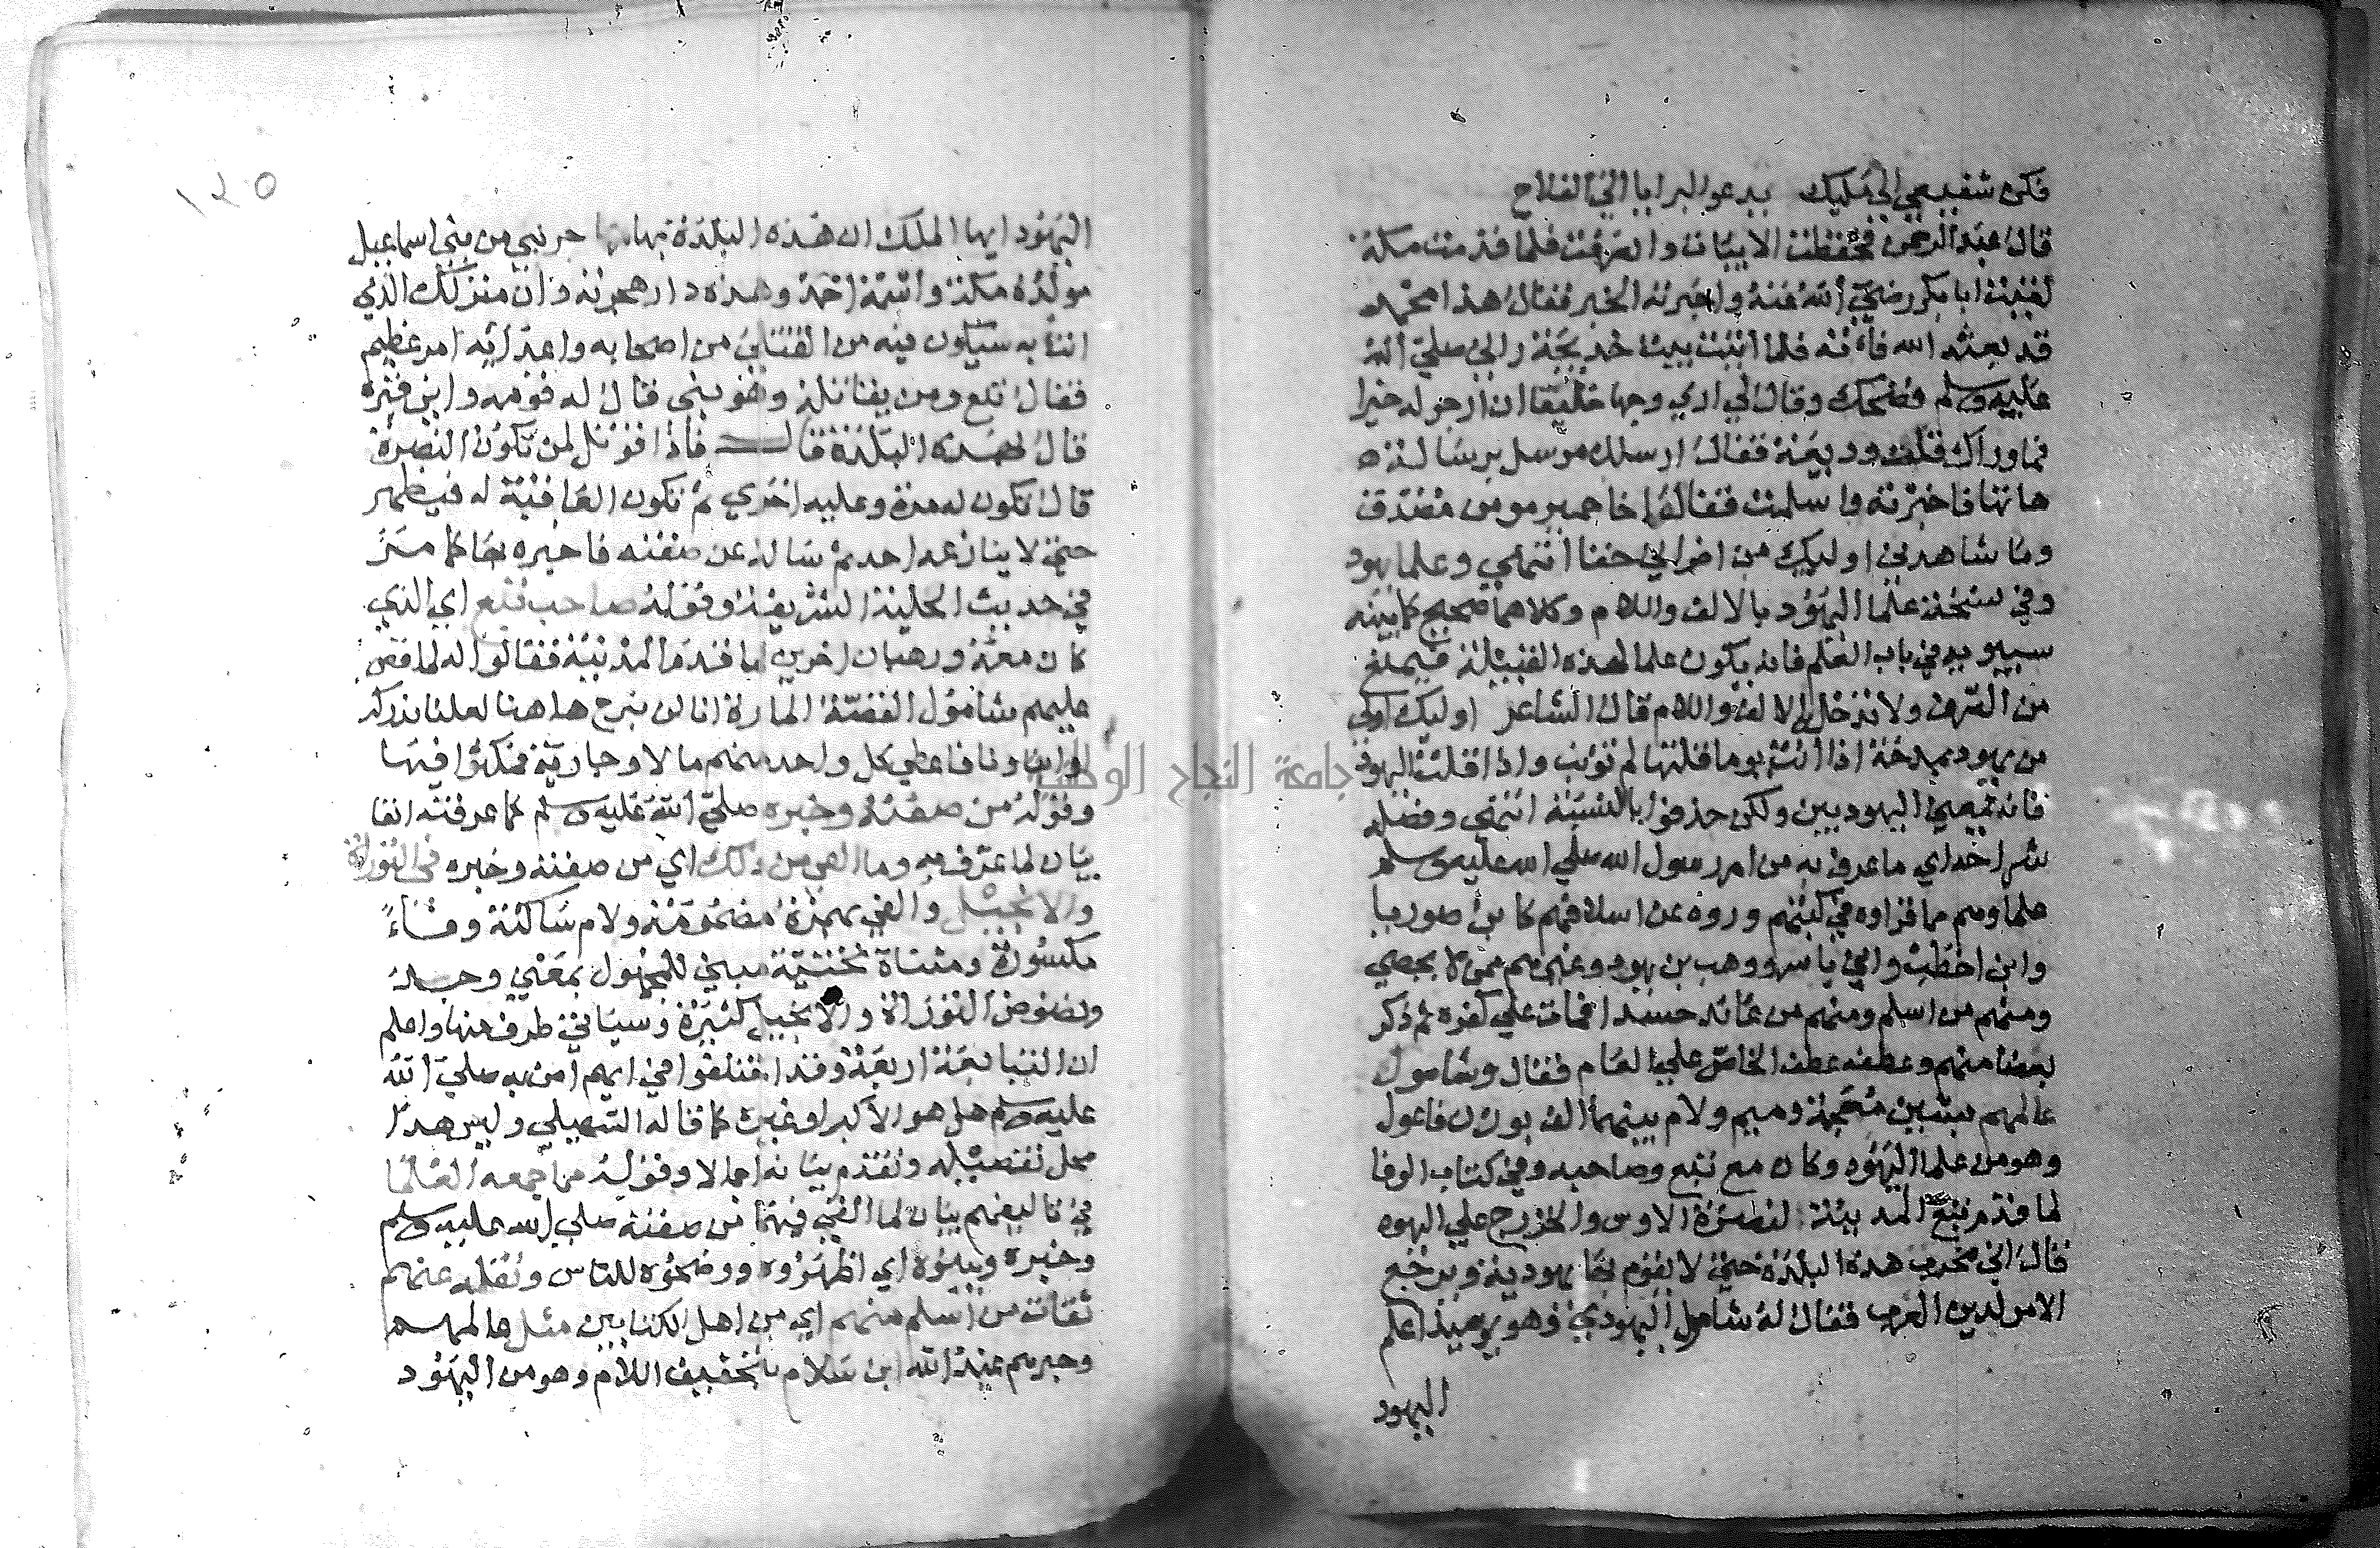 فكن شفيعي الى مليك يدعو البرايا الى الفلاح
قال عبد الرحمن فحفظت الابيات وانصرفت فلما قدمت مكة
لقيت ابا بكر رضي الله عنه واخبرته الخبر فقال هذا محمد
قد بعثه الله فأته فلما اتيت بيت خديجة راني صلى الله
عليه وسلم فضحك وقال لي ارى وجها خليقا ان ارجو له خيرا
فما وراك قلت وديعة فقال ارسلك مرسل برسالة
هاتها فاخبرته واسلمت فقال اخا حمير مومن مصدق
وما شاهدني اوليك من اخواني حقا انتهى وعلما يهود
وفي نسخة علما اليهود بالالف واللام وكلاهما صحيح كما بينه
سيبويه في باب العلم فانه يكون علما لهذه القبيلة فيمنع
من الصرف ولا تدخل الالف واللام قال الشاعر اوليك اولى
من يهود بمدحة اذا انت يوما قلتها لم تونب واذا قلت اليهود
فانه بمعنى اليهوديين ولكن حذفوا يا النسبة انتهى وفضله
شراحه اي ما عرف به من امر رسول الله صلى الله عليه وسلم
علماوهم مما قراوه في كتبهم ورووه عن اسلافهم كابن صوريا
وابن اخطب وابي ياسر ووهب بن يهود وغيرهم ممن لا يحصى
ومنهم من اسلم ومنهم من عاند حسدا فمات على كفره ثم ذكر
بعضا منهم وعطفه عطف الخاص على العام فقال وشامول
عالمهم بشين معجمة وميم ولام بينهما الف بوزن فاعول
وهو من علما اليهود وكان مع تبع وصاحبه وفي كتاب الوفا
لما قدم تبع المدينة لنصرة الاوس والخزرج على اليهود
قال اني مخرب هذه البلدة حتى لا يقوم بها يهودية ويرجع
الامر لدين العرب فقال له شامول اليهودي وهو يوميذ اعلم
اليهود
١٢٥
اليهود ايها الملك ان هذه البلدة مهاجر نبي من بني اسماعيل
مولده مكة واسمه احمد وهذه دار هجرته وان منزلك الذي
انت به سيكون فيه من القتلى من اصحابه واعدايه امر عظيم
فقال تبع ومن يقاتله وهو نبي قال له قومه واين قبره
قال بهذه البلدة قال فاذا قوتل لمن تكون النصرة
قال تكون له مرة وعليه اخرى ثم تكون العاقبة له فيظهر
حتى لا ينازعه احد ثم ساله عن صفته فاخبره بها كما مر
في حديث الحلية الشريفة وقوله صاحب تبع اي الذي
كان معه ورهبان اخرين لما قدم المدينة فقالوا له لما قص
عليهم شامول القصة المارة انا لن نبرح هاهنا لعلنا ندركه
وابناونا فاعطى كل واحد منهم مالا وجارية فمكثوا فيها
وقوله من صفته وخبره صلى الله عليه وسلم كما عرفته انفا
بيان لما عرف به وما الفي من ذلك اي من صفته وخبره في التوراة
والانجيل والفي بهمزة مضمومة ولام ساكنة وفاء
مكسورة ومثناة تحتية مبني للمجهول بمعنى وجد
ونصوص التوراة والانجيل كثيرة وسياتي طرف منها واعلم
ان التبابعة اربعة وقد اختلفوا في ايهم امن به صلى الله
عليه وسلم هل هو الاكبر او غيره كما قاله السهيلي وليس هذا
محل تفصيله وتقدم بيانه اجمالا وقوله مما جمعه العلما
في تاليفهم بيان لما الفي فيهما من صفته صلى الله عليه وسلم
وخبره وبينوه اي اظهروه ووضحوه للناس ونقله عنهم
ثقات من اسلم منهم اي من اهل الكتابين مثل عالمهم
وحبرهم عبد الله ابن سلام بتخفيف اللام وهو من اليهود
جامعة النجاح الوطنية